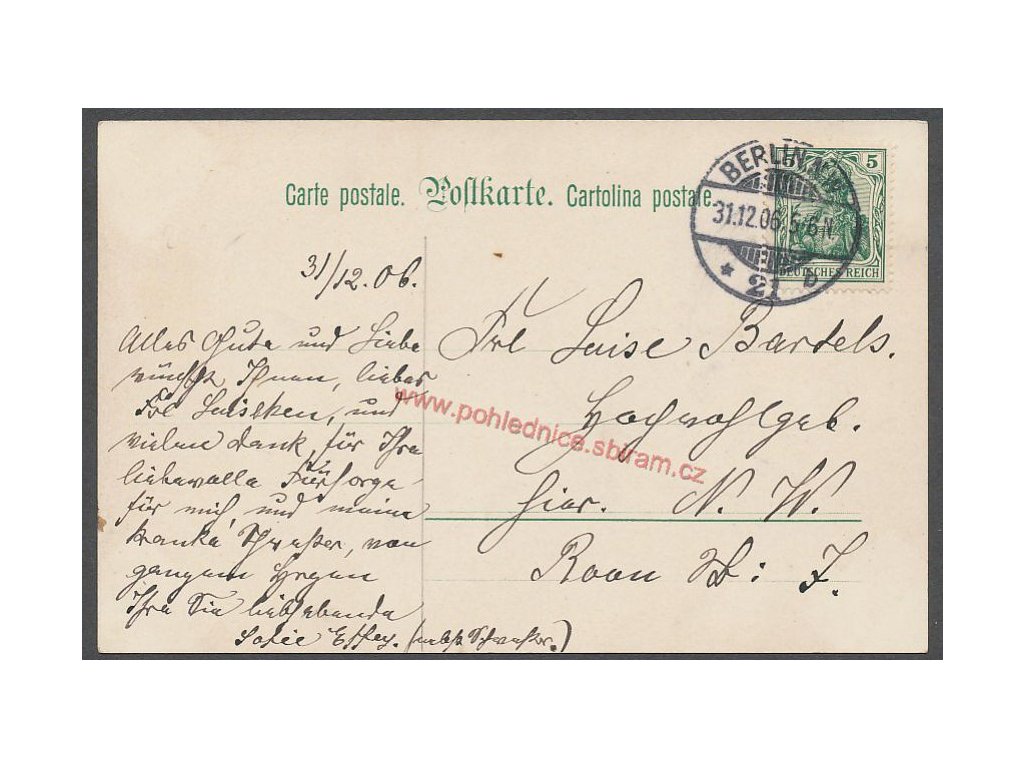 Carte postale. Postkarte. Cartolina postale.
BERLIN N.W.
31.12.06. 5-6N.
* 21 b
5 5
DEUTSCHES REICH
31/12.06.
Alles Gute und Liebe
wünscht Ihnen, liebes
Frl Luischen, und
vielen Dank, für Ihre
liebevolle Fürsorge
für mich, und meine
kranke Schwester, von
ganzem Herzen
Ihre Sie liebhabende
Sofie (nebst Schwester.)
Frl Luise Bartels.
Hochwohlgeb.
hier. N. W.
Roon St: 7.
www.pohlednice.sbiram.cz